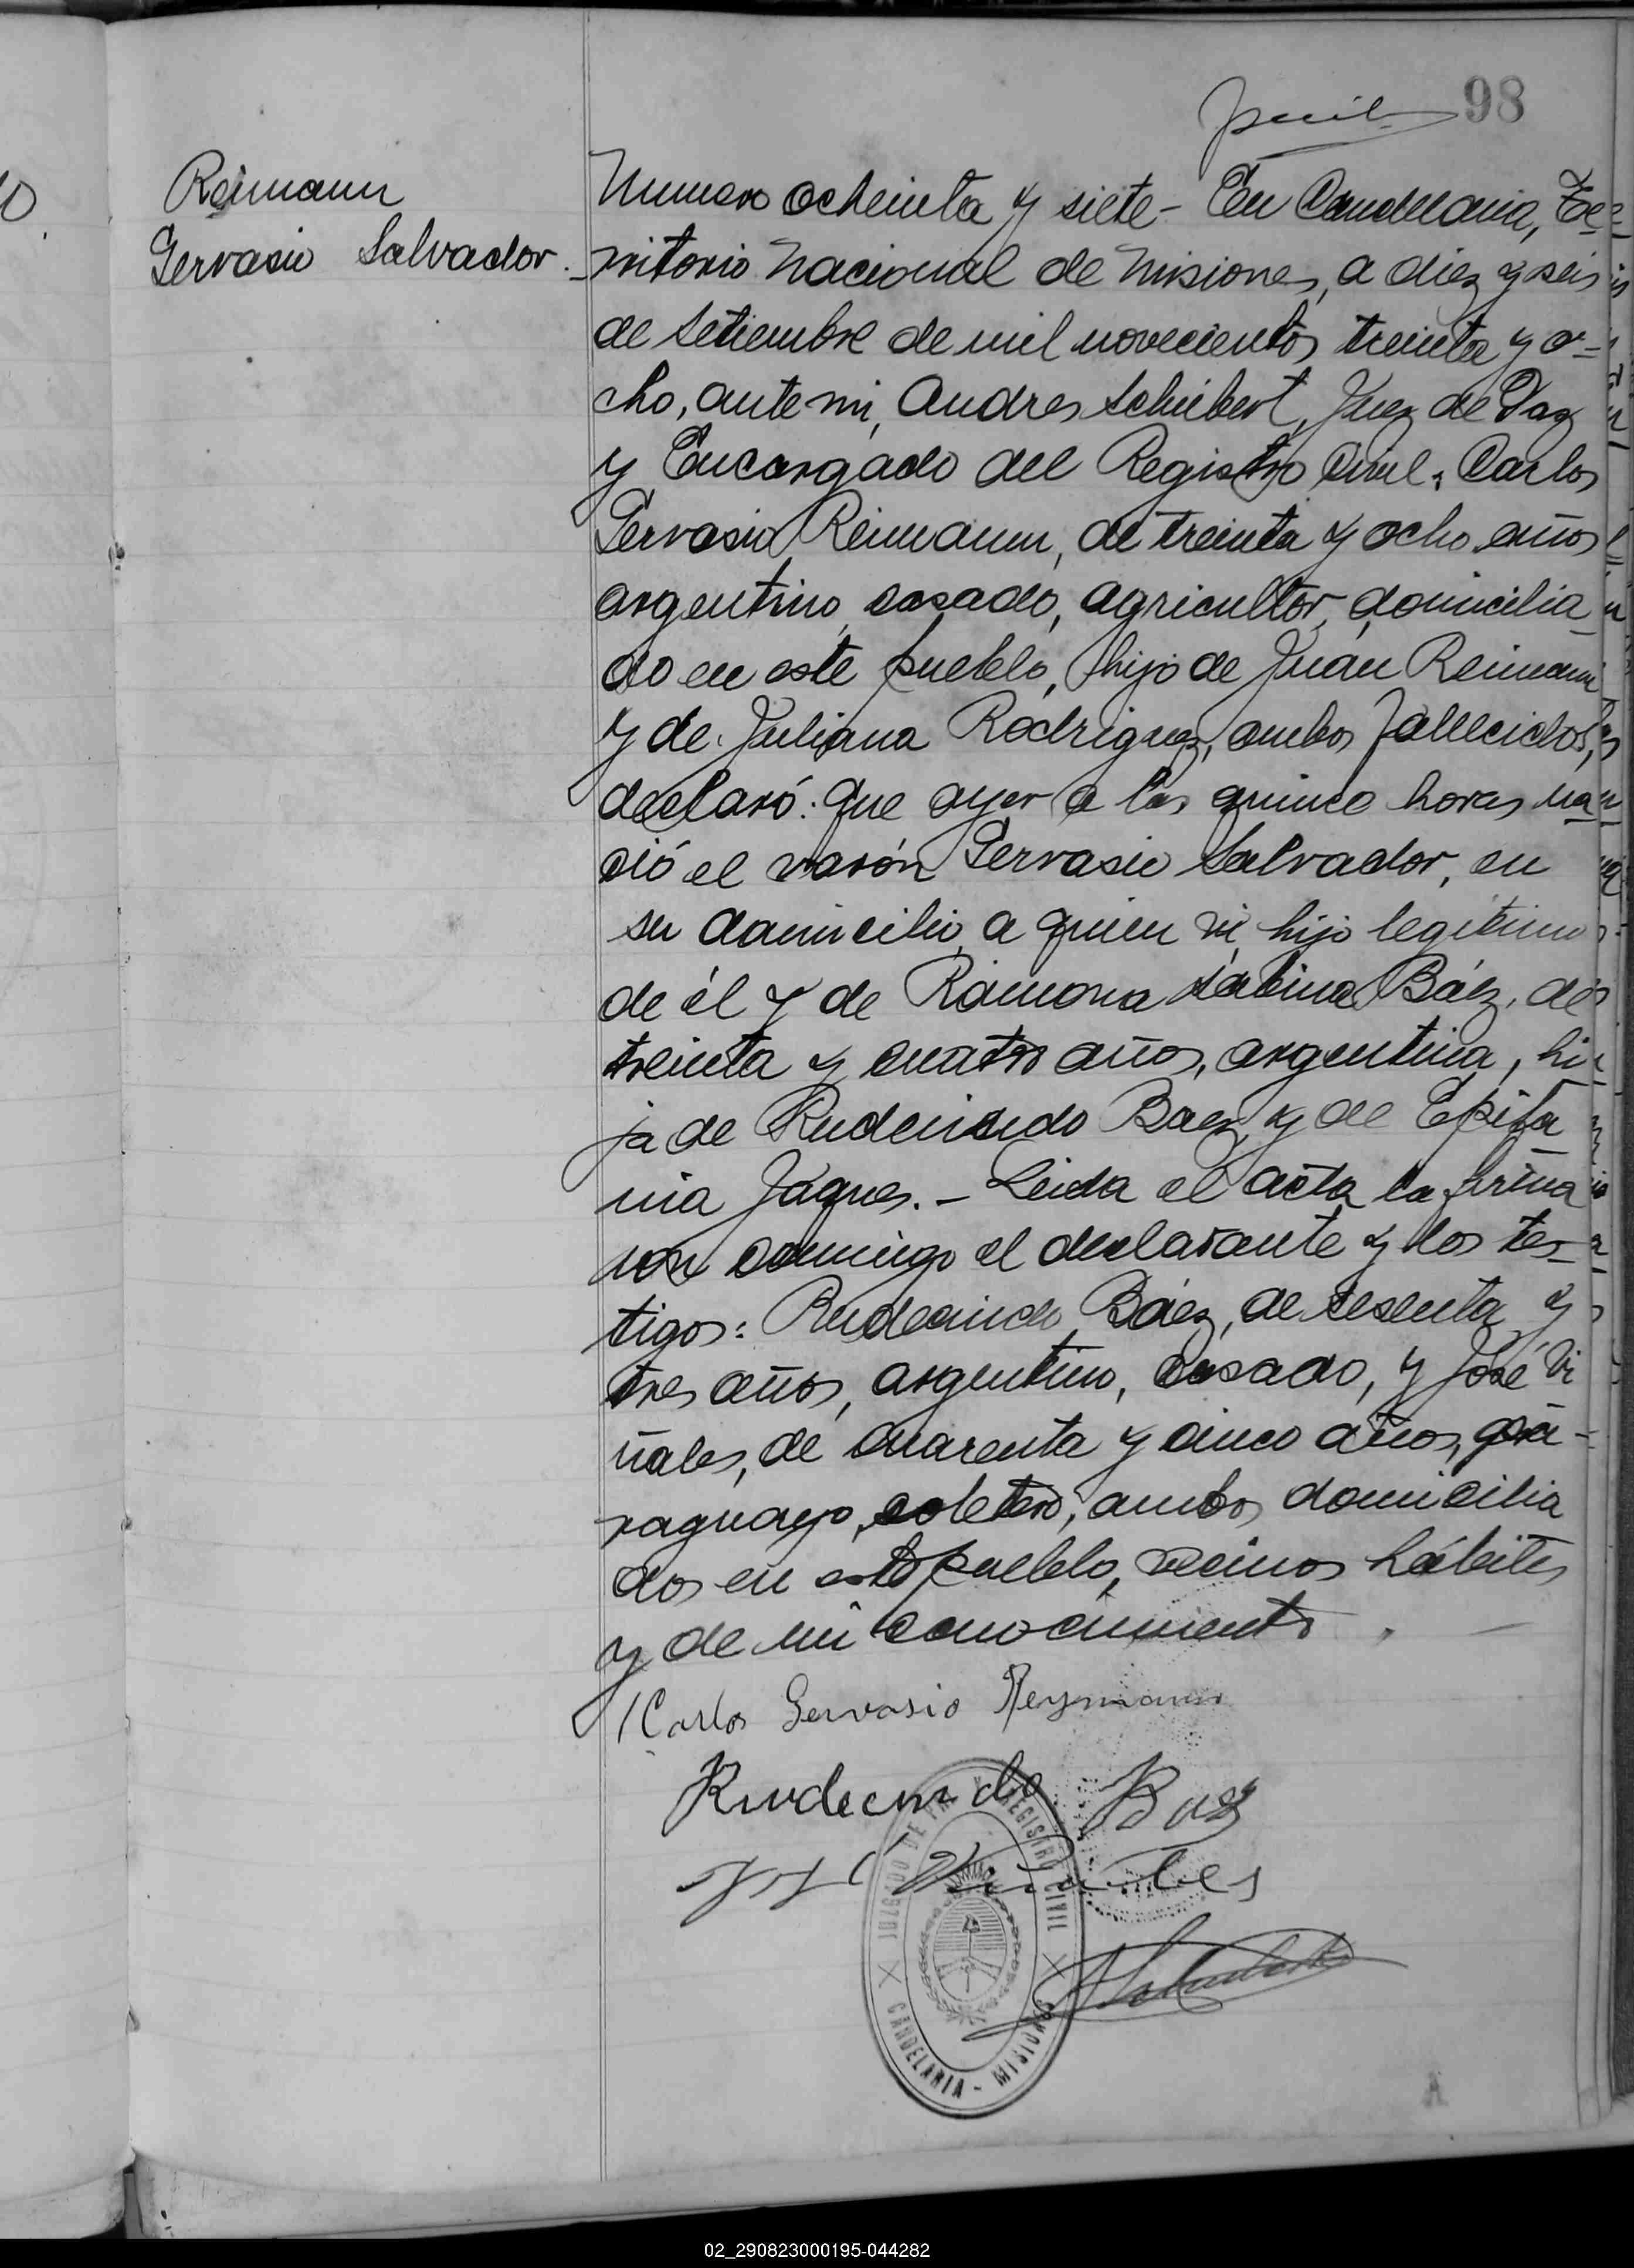 98
Reimann
Gervasio Salvador.
Numero ocheinta y siete - En Candelaria, Te-
rritorio Nacional de Misiones, a diez y seis
de Setiembre de mil novecientos treinta y o-
cho, ante mi, Andres Schubert, Juez de Paz
y Encargado del Registro Civil; Carlos
Gervasio Reimann, de treinta y ocho años
argentino, casado, agricultor, domicilia-
do en este pueblo, hijo de Juan Reimann
y de Juliana Rodriguez, ambos fallecidos,
declaró: Que ayer a las quince horas na-
ció el varón Gervasio Salvador, en
su domicilio, a quien vi, hijo legítimo
de él y de Ramona Sabina Báez, de
treinta y cuatro años, argentina, hi-
ja de Rudecindo Baez y de Epifa
nia Jaques. - Leida el acta la firma
ron conmigo el declarante y los tes-
tigos: Rudecindo Báez, de sesenta y
tres años, argentino, casado, y José Vi
ñales, de cuarenta y cinco años, pa-
raguayo, soltero, ambos domicilia
dos en este pueblo, vecinos hábiles
y de mi conocimiento.
Carlos Gervasio Reymann
Rudecindo Baz
Viñales
JUZGADO DE PAZ Y REGISTRO CIVIL
CANDELARIA - MISIONES
02_290823000195-044282